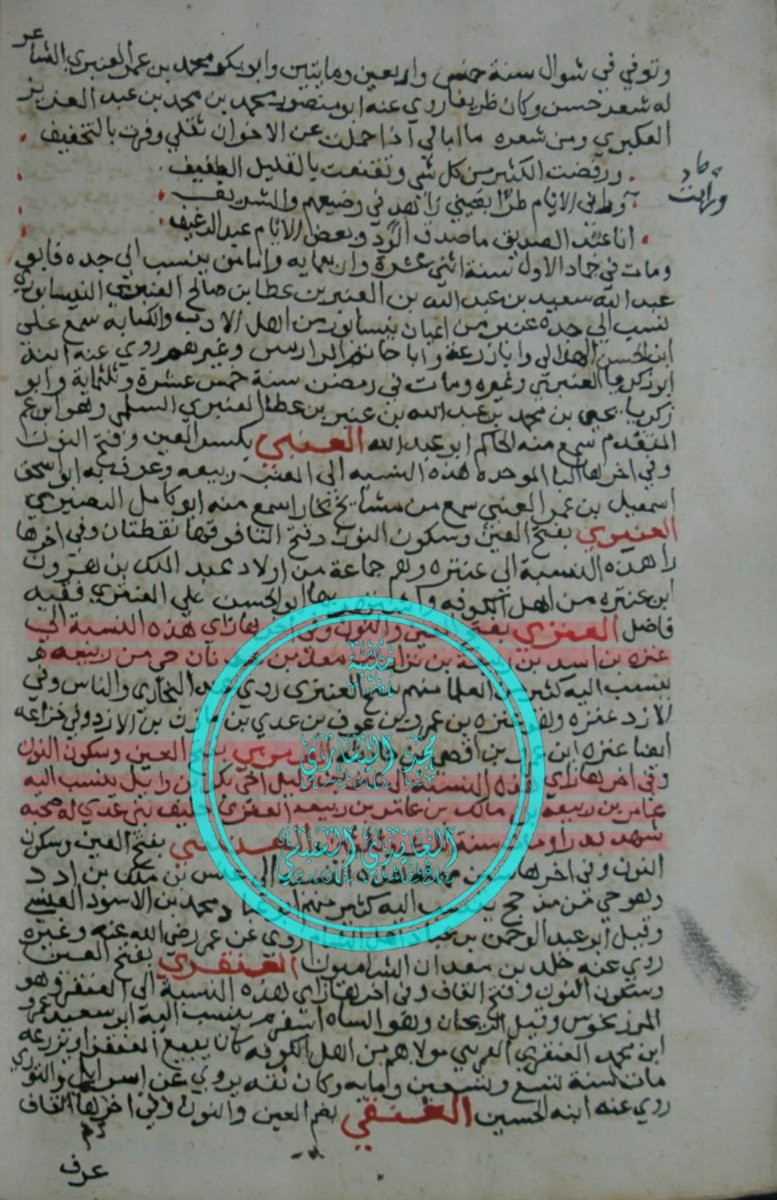 وتوفي في شوال سنة خمس واربعين ومايتين وابو بكر محمد بن عمر العنبري الشاعر
له شعر حسن وكان ظريفا روي عنه ابو منصور محمد بن محمد بن عبد العزيز
العكبري ومن شعره ما ابالي اذا حملت عن الاخوان ثقلي وفزت بالتخفيف
ورفضت الكثير من كل شي وتقنعت بالقليل الطفيف
وراني الانام طرا بعيني زاهد في وضيعهم والشريف
انا عبد الصديق ما صدق الود وبعض الانام عبد الرغيف
ومات في جماد الاول سنة اثني عشرة واربعمايه واما من ينسب الى جده فابو
عبد الله سعيد بن عبد الله بن العنبر بن عطا بن صالح العنبري النيسابوري
نسب الي جده عنبر من اعيان نيسابور من اهل الادب والكتابه سمع علي
ابن الحسن الهلالي وابا زرعة وابا حاتم الرازيين وغيرهم روي عنه ابنه
ابو زكريا العنبري وغيره ومات في رمضن سنة خمس عشرة وثلثماية وابو
زكريا يحيى بن محمد بن عبد الله بن عنبر بن عطا العنبري السلمي وهو ابن عم
المتقدم سمع منه الحاكم ابو عبد الله العنبي بكسر العين وفتح النون
وفي اخرها البا الموحده هذه النسبه الى العنب ربيعه وعرف به ابو اسحق
اسمعيل بن عمر العنبي سمع من مشايخ بخارا سمع منه ابو كامل البصيري
العنتري بفتح العين وسكون النون وفتح التا فوقها نقطتان وفي اخرها
را هذه النسبة الى عنتره وهم جماعة من اولاد عبد الملك بن هرون
ابن عنتره من اهل الكوفه ابو الحسن علي العنتري فقيه
فاضل العنزي العين والنون وفي اخرها زاي هذه النسبة الي
عنزه بن اسد بن ربيعة بن نزار بن معد بن عدنان حي من ربيعه
ينسب اليه كثير من العلما منهم العنزي روي عنه البخاري والناس وفي
الازد عنزه وهو عنزه بن عمرو بن عوف بن عدي بن مازن بن الازد وفي خزاعه
ايضا عنزه ابن عمرو بن افصي بفتح العين وسكون النون
وفي اخرها زاي هذه النسبة الى عنز بن وايل اخي بكر بن وايل ينسب اليه
عامر بن ربيعة بن مالك بن عامر بن ربيعه العنزي حليف بني عدي له صحبه
شهد بدرا ومات سنة العنسي بفتح العين وسكون
النون وفي اخرها سين الى عنس بن ملك بن ادد
وهو حي من مذحج ينسب اليه كثير منهم محمد بن الاسود العنسي
وقيل ابو عبد الرحمن من عباد اهل الشام روي عن عمر رضي الله عنه وغيره
روي عنه خلد بن معدان الشاميون العنقزي بفتح العين
وسكون النون وفتح القاف وفي اخرها زاي هذه النسبة الى العنقز وهو
المرزنجوش وقيل الريحان وهو الشاه اسفرم ينسب اليه ابو سعيد عمرو
ابن محمد العنقزي القرشي مولاهم من اهل الكوفه كان يبيع العنقز او يزرعه
مات سنة تسع وتسعين ومايه وكان ثقه يروي عن اسرايل والثوري
روي عنه ابنه الحسين العنقي بضم العين والنون وفي اخرها القاف
عرف